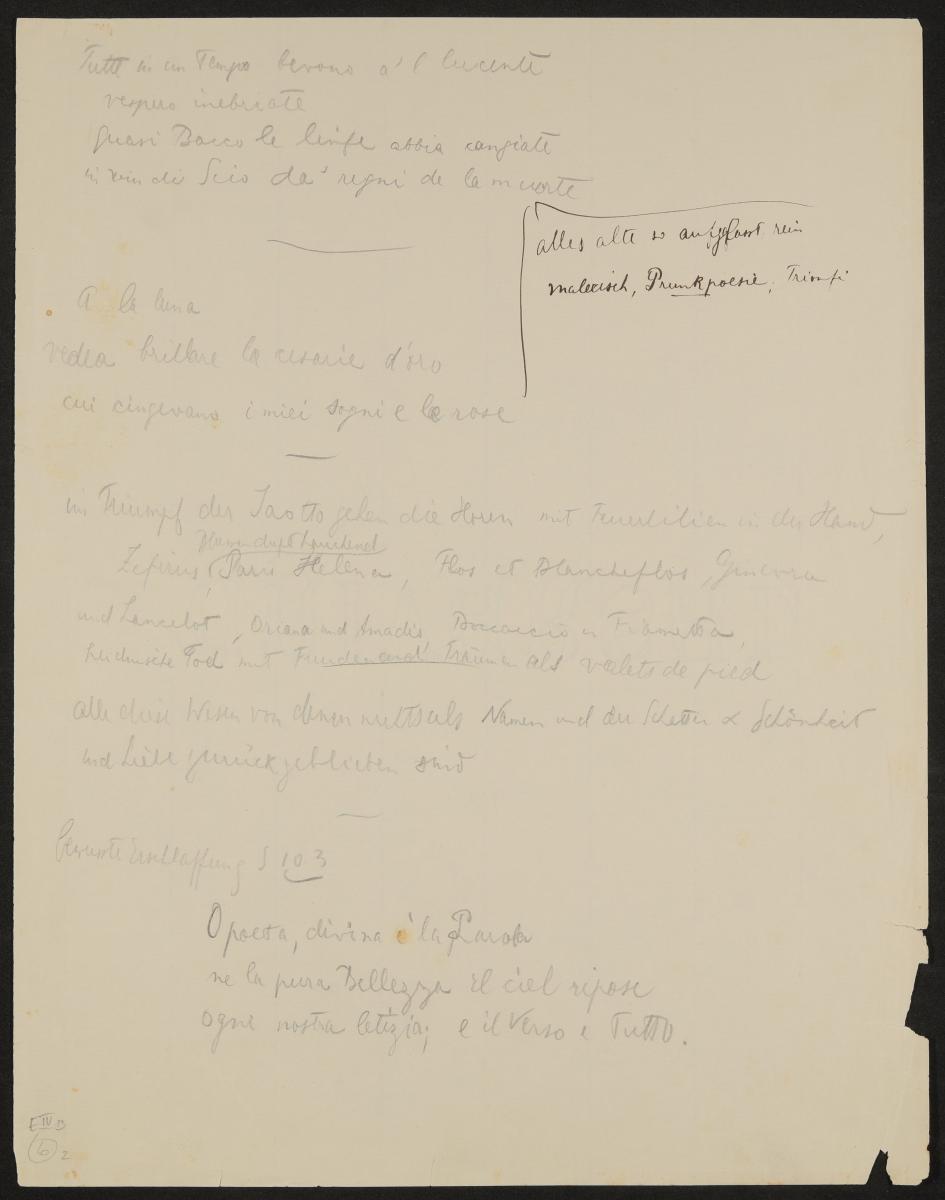 Tutte in un Tempo bevono a'l lucente
vespero inebriate
quasi Bacco le linfe abbia cangiate
in vin di Scio da' regni de la morte
alles alte so aufgefasst rein
malerisch, Prunkpoesie, Trionfi
A la luna
vedea brillare la cesarie d'oro
cui cingevano i miei sogni e le rose
im Triumpf der Isotto gehen die Horen mit Feuerlilien in der Hand,
Blumenduft hauchend
Zefirus, Paris Helena, Flos et Blancheflos, Ginevra
und Lancelot, Oriana und Amadis, Boccaccio u Fiametta,
Tod mit Träumen als valets de pied
alle diese Wesen von denen nichts als Namen und der Schönheit
und Liebe zurückgeblieben sind
bewusste Erschlaffung S 103
O poeta, divina è la Parola
ne la pura Bellezza il ciel ripose
ogni nostra letizia; e il Verso è Tutto.
E IV B
6 2